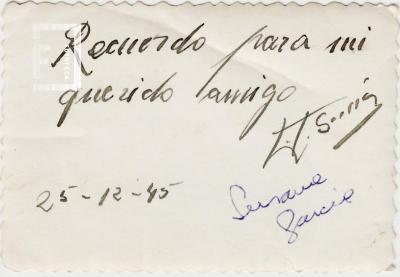 Recuerdo para mi
querido amigo
25-12-45
Susana
Garcia